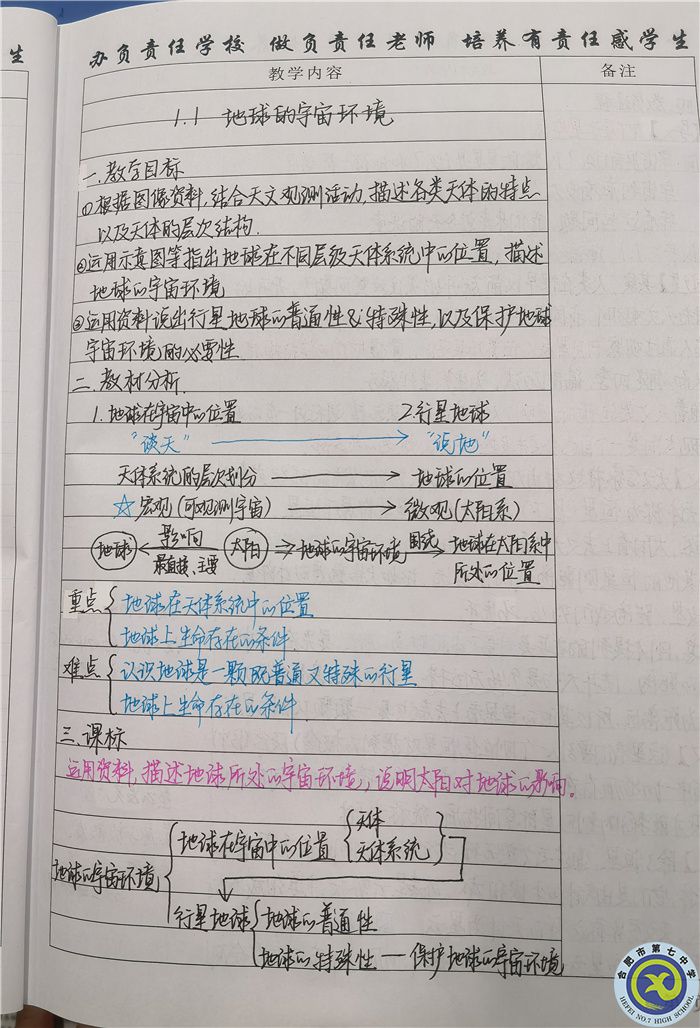 生
办负责任学校 做负责任老师 培养有责任感学生
教学内容
备注
1.1 地球的宇宙环境
一.教学目标
①根据图像资料,结合天文观测活动,描述各类天体的特点
以及天体的层次结构.
②运用示意图等指出地球在不同层级天体系统中的位置,描述
地球的宇宙环境
③运用资料说出行星地球的普通性&特殊性,以及保护地球
宇宙环境的必要性.
二.教材分析.
1.地球在宇宙中的位置 2.行星地球
"谈天" → "说地"
天体系统的层次划分 → 地球的位置
☆宏观(可观测宇宙) → 微观(太阳系)
地球 ← 影响 最直接、主要 太阳 ⇒ 地球的宇宙环境 围绕 → 地球在太阳系中
所处的位置
重点 { 地球在天体系统中的位置
地球上生命存在的条件
难点 { 认识地球是一颗既普通又特殊的行星
地球上生命存在的条件.
三.课标
运用资料,描述地球所处的宇宙环境,说明太阳对地球的影响。
地球的宇宙环境
地球在宇宙中的位置 { 天体
天体系统 }
行星地球 { 地球的普通性
地球的特殊性 — 保护地球的宇宙环境
合肥市第七中学
HEFEI NO.7 HIGH SCHOOL